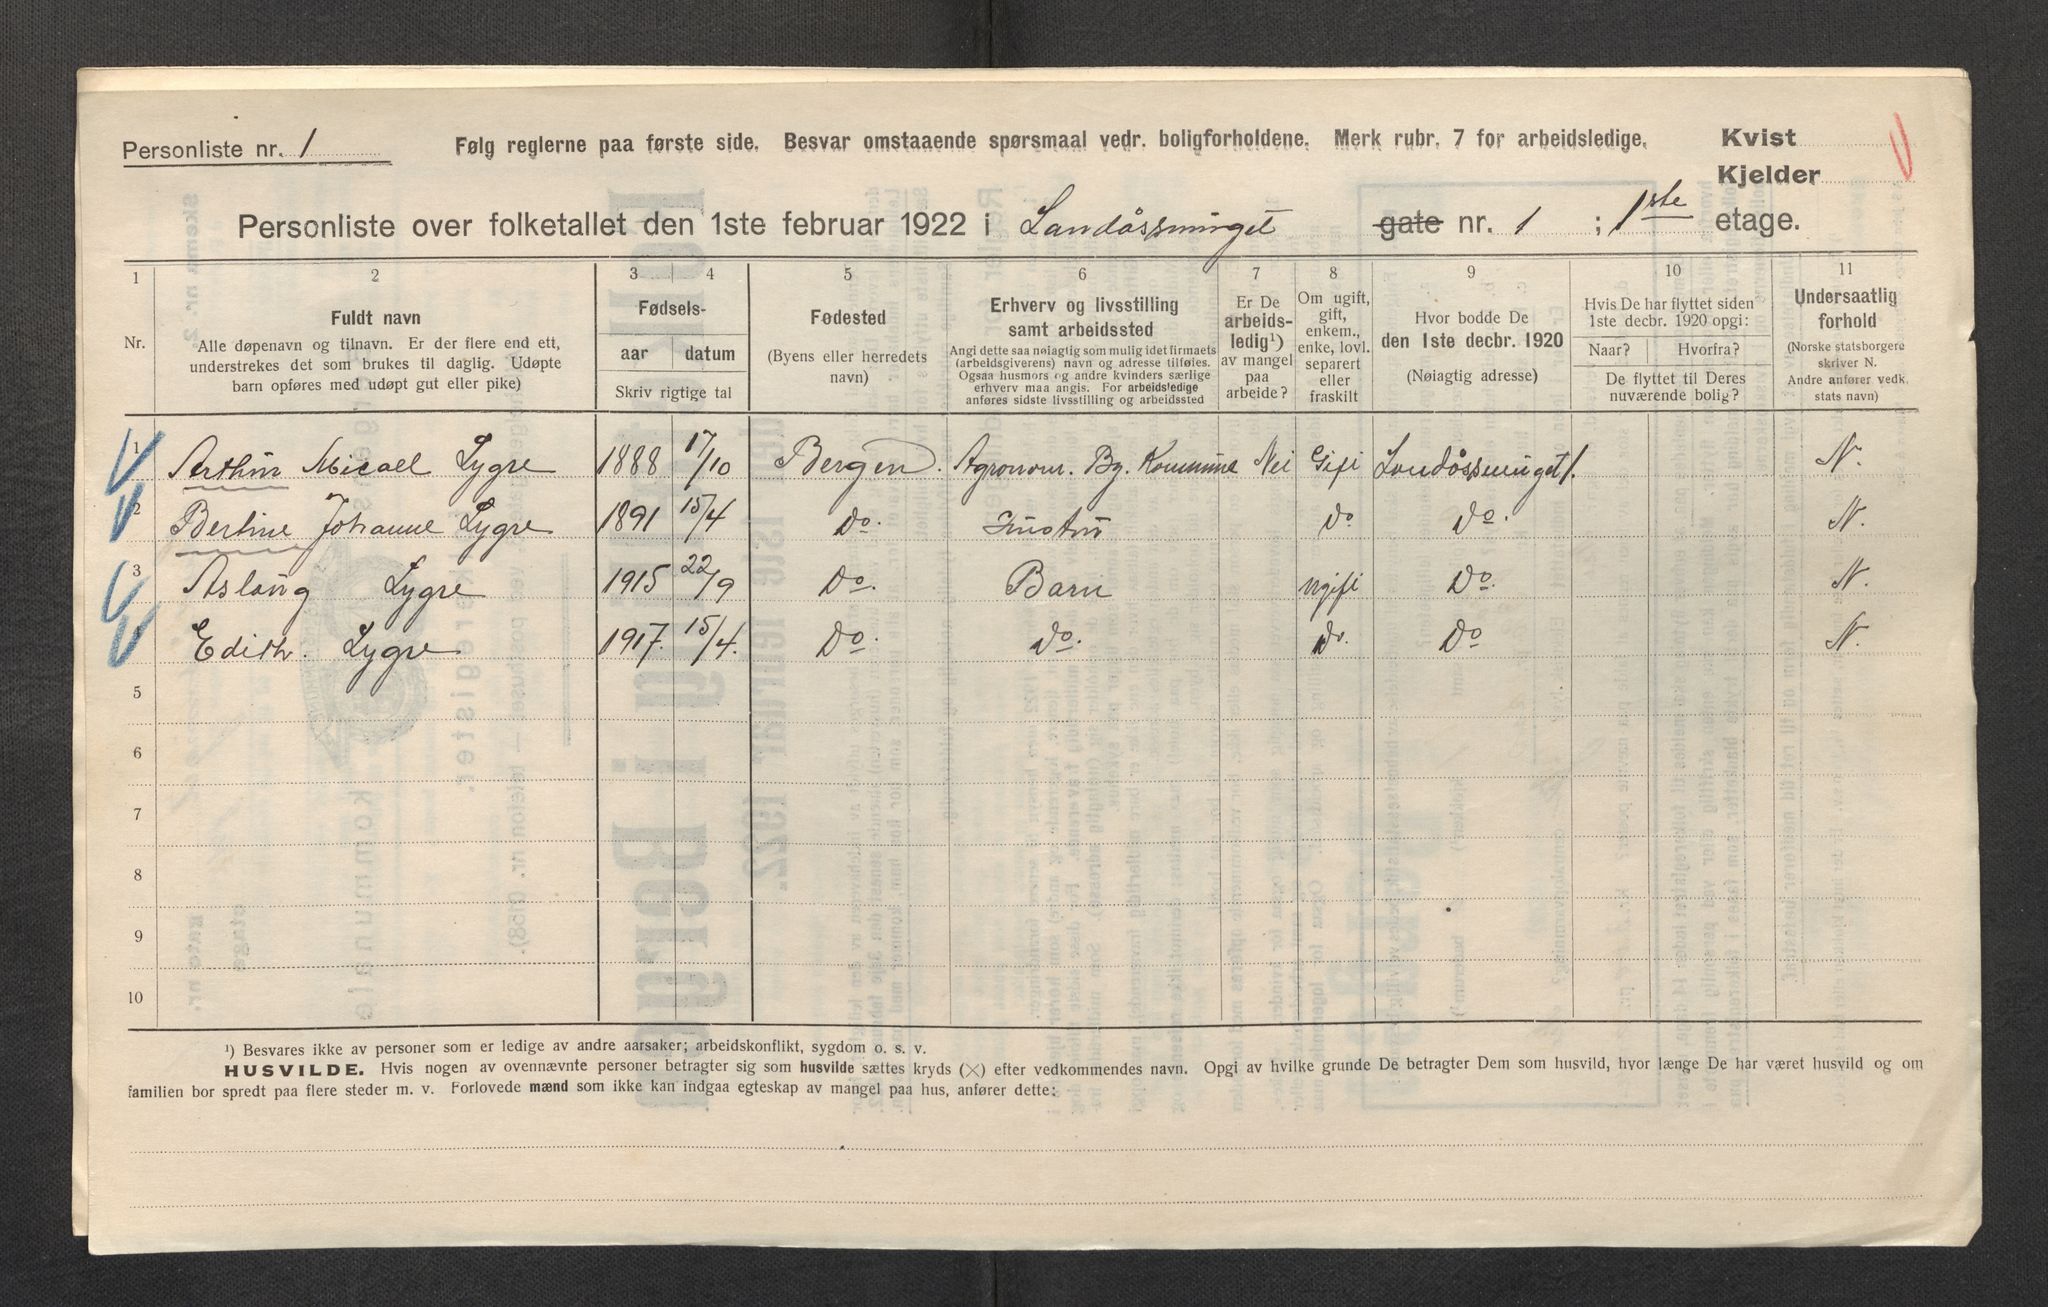 Personliste nr. 1
Følg reglerne paa første side. Besvar omstaaende spørsmaal vedr. boligforholdene. Merk rubr. 7 for arbeidsledige.
Kvist
Kjelder
Personliste over folketallet den 1ste februar 1922 i Landåssvinget gate nr. 1 ; 1ste etage.
1 2 3 4 5 6 7 8 9 10 11
Nr.
Fuldt navn
Alle døpenavn og tilnavn. Er der flere end ett,
understrekes det som brukes til daglig. Udøpte
barn opføres med udøpt gut eller pike)
Fødsels-
aar datum
Skriv rigtige tal
Fødested
(Byens eller herredets
navn)
Erhverv og livsstilling
samt arbeidssted
Angi dette saa nøiagtig som mulig idet firmaets
(arbeidsgiverens) navn og adresse tilføles.
Ogsaa husmors og andre kvinders særlige
erhverv maa angis. For arbeidsledige
anføres sidste livsstilling og arbeidssted
Er De
arbeids-
ledig¹)
av mangel
paa
arbeide?
Om ugift,
gift,
enkem.,
enke, lovl.
separert
eller
fraskilt
Hvor bodde De
den 1ste decbr. 1920
(Nøiagtig adresse)
Hvis De har flyttet siden
1ste decbr. 1920 opgi:
Naar? Hvorfra?
De flyttet til Deres
nuværende bolig?
Undersaatlig
forhold
(Norske statsborgere
skriver N.
Andre anfører vedk.
stats navn)
1 Arthur Micael Lygre 1888 17/10 Bergen. Agronom. Bg. Kommune Nei Gift Landåssvinget 1. N.
2 Bertine Johanne Lygre 1891 15/4 Do. Hustru Do Do. N.
3 Aslaug Lygre 1915 22/9 Do. Barn ugift Do. N.
Edith. Lygre 1917. 15/4. Do. Do. Do. Do N.
5
6
7
8
9
10
¹) Besvares ikke av personer som er ledige av andre aarsaker; arbeidskonflikt, sygdom o. s. v.
HUSVILDE. Hvis nogen av ovennævnte personer betragter sig som husvilde sættes kryds (×) efter vedkommendes navn. Opgi av hvilke grunde De betragter Dem som husvild, hvor længe De har været husvild og om
familien bor spredt paa flere steder m. v. Forlovede mænd som ikke kan indgaa egteskap av mangel paa hus, anfører dette: